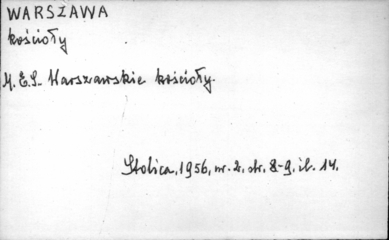 WARSZAWA
kościoły
M.E.S. Warszawskie kościoły.
Stolica, 1956, nr. 2. str. 8-9. il. 14.